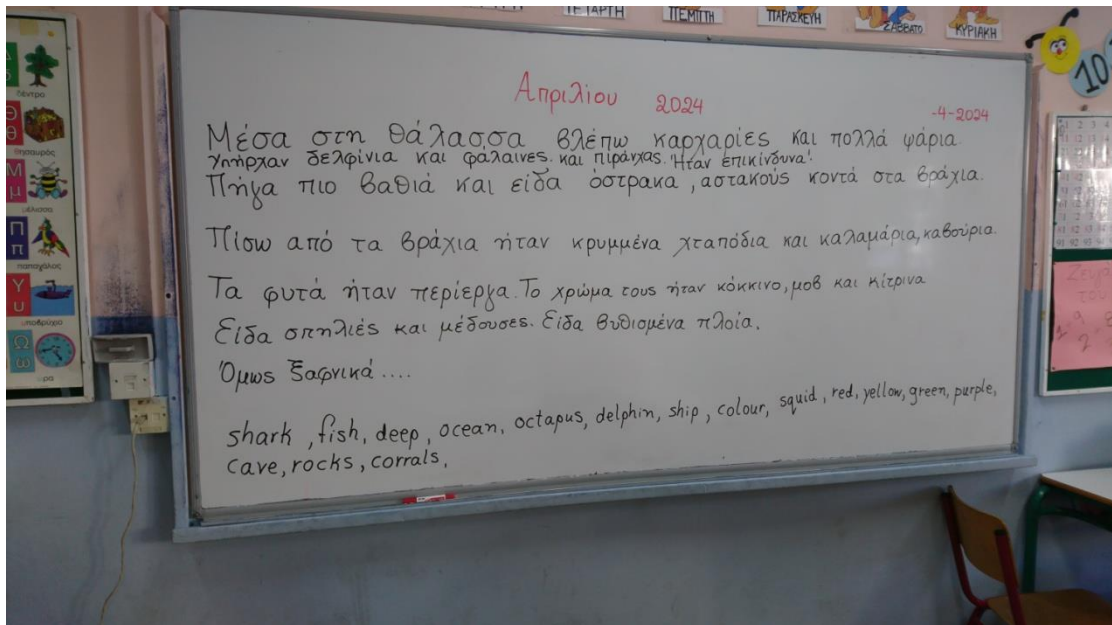 ΤΕΤΑΡΤΗ ΠΕΜΠΤΗ ΠΑΡΑΣΚΕΥΗ ΣΑΒΒΑΤΟ ΚΥΡΙΑΚΗ
10
Απριλίου 2024
-4-2024
Μέσα στη θάλασσα βλέπω καρχαρίες και πολλά ψάρια.
Υπήρχαν δελφίνια και φάλαινες. και πιράνχας. Ήταν επικίνδυνα!
Πήγα πιο βαθιά και είδα όστρακα, αστακούς κοντά στα βράχια.
Πίσω από τα βράχια ήταν κρυμμένα χταπόδια και καλαμάρια, καβούρια.
Τα φυτά ήταν περίεργα. Το χρώμα τους ήταν κόκκινο, μοβ και κίτρινα
Είδα σπηλιές και μέδουσες. Είδα βυθισμένα πλοία.
Όμως ξαφνικά....
shark, fish, deep, ocean, octapus, delphin, ship, colour, squid, red, yellow, green, purple,
cave, rocks, corrals,
δέντρο
Θ θ
θησαυρός
Μ μ
μέλισσα
Π π
παπαγάλος
Υ υ
υποβρύχιο
Ω ω
ώρα